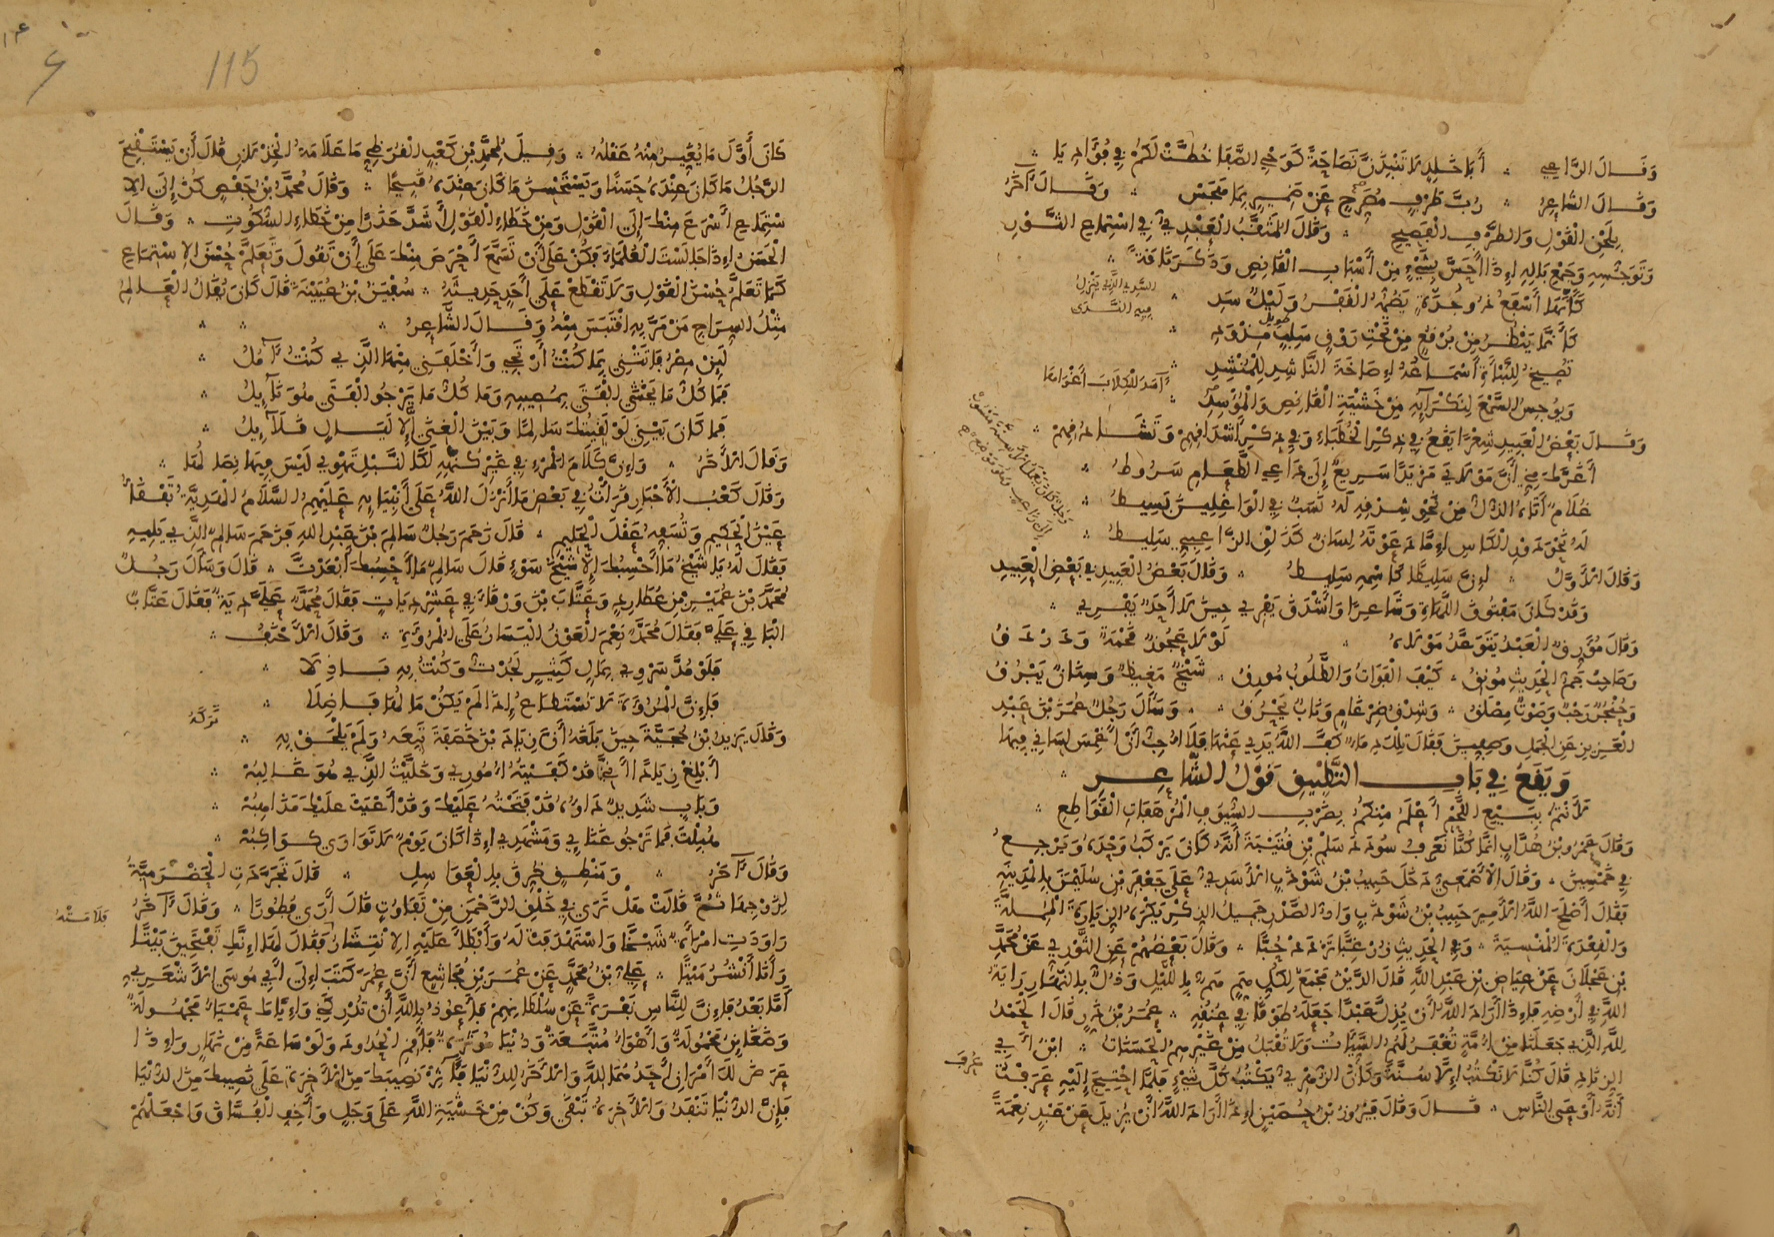 وَقَالَ الرَّاعِي ؞ أَبَا خَالِدٍ لَا تَنْبِذَنَّ نَصَاحَةً كَوَحْيِ الصَّفَا خُطَّتْ لَكُمْ فِي فُؤَادِيَا
وَقَالَ الشَّاعِرُ ؞ رُبَّ طَرْفٍ مُصَرِّحٍ عَنْ ضَمِيرٍ بِمَا هَجَسْ ؞ وَقَالَ آخَرُ
بِلَحْنِ الْقَوْلِ وَالطَّرْفِ الْفَصِيحِ ؞ وَقَالَ الْمُثَقِّبُ الْعَبْدِيُّ فِي اسْتِمَاعِ الثَّوْرِ
وَتَوَجُّسِهِ وَجَمْعِ بَالِهِ إِذَا أَحَسَّ بِشَيْءٍ مِنْ أَسْبَابِ الْقَانِصِ وَذَكَرَ نَاقَةً
كَأَنَّهَا أَسْفَعُ ذُو جُدَّةٍ يَضُمُّهُ الْقَفْرُ وَلَيْلٌ سَدِ
كَأَنَّمَا يَنْظُرُ مِنْ بُرْقُعٍ مِنْ تَحْتِ رَوْقٍ سَلِبٍ مِذْوَدِ
تُصِيخُ لِلنَّبْأَةِ أَسْمَاعُهُ إِصَاخَةَ النَّاشِدِ لِلْمُنْشِدِ
وَيُوجِسُ السَّمْعَ لِنَكْرَائِهِ مِنْ خَشْيَةِ الْقَانِصِ وَالْمُؤْسِدِ
وَقَالَ بَعْضُ الْعَبِيدِ شِعْرًا يَقَعُ فِي ذِكْرِ الْخُطَبَاءِ وَفِي ذِكْرِ أَشْدَاقِهِمْ وَتَشَادُقِهِمْ
أَغَرَّكَ مِنِّي أَنَّ مَوْلَايَ مَزْيَدًا سَرِيعٌ إِلَى دَاعِي الطَّعَامِ سَرُوطُ
غُلَامٌ أَتَاهُ الذُّلُّ مِنْ نَحْوِ شِدْقِهِ لَهُ نَسَبٌ فِي الْوَاغِلِينَ بَسِيطُ
لَهُ نَحْوَ دَوْرِ الْكَأْسِ إِمَّا دَعَوْتَهُ لِسَانٌ كَذَلْقِ الزَّاعِبِيِّ سَلِيطُ
وَقَالَ الْأَوَّلُ ؞ إِنَّ سَلِيطًا كَاسْمِهِ سَلِيطُ ؞ وَقَالَ بَعْضُ الْعَبِيدِ فِي بَعْضِ الْعَبِيدِ
وَقَدْ كَانَ مَفْتُوقَ اللَّهَاةِ وَشَاعِرًا وَأَشْدَقَ يَفْرِي حِينَ لَا أَحَدٌ يَفْرِي
وَقَالَ مُوَرِّقٌ الْعَبْدُ يَتَوَعَّدُ مَوْلَاهُ ؞ لَوْلَا عَجُوزٌ قَحْمَةٌ وَدَرْدَقُ
وَصَاحِبٌ جَمُّ الْحَدِيثِ مُونِقُ ؞ كَيْفَ الْفَوَاتُ وَالطَّلُوبُ مُورِقُ ؞ شَيْخٌ مَغِيظٌ وَسِنَانٌ يَبْرُقُ
وَحَنْجَرٌ رَحْبٌ وَصَوْتٌ مِصْلَقُ ؞ وَشِدْقُ ضِرْغَامٍ وَنَابٌ يَحْرُقُ ؞ وَسَأَلَ رَجُلٌ عُمَرَ بْنَ عَبْدِ
الْعَزِيزِ عَنِ الْجَمَلِ وَصِفِّينَ فَقَالَ تِلْكَ دِمَاءٌ كَفَّ اللَّهُ يَدِي عَنْهَا فَلَا أُحِبُّ أَنْ أَغْمِسَ لِسَانِي فِيهَا
وَيَقَعُ فِي بَابِ التَّطْبِيقِ قَوْلُ الشَّاعِرِ
لَأَنْتُمْ بِبَيْعِ اللَّحْمِ أَعْلَمُ مِنْكُمُ بِضَرْبِ السُّيُوفِ الْمُرْهَفَاتِ الْقَوَاطِعِ
وَقَالَ عَمْرُو بْنُ هُدَّابٍ إِنَّمَا كُنَّا نَعْرِفُ سُودَدَ سَلْمِ بْنِ قُتَيْبَةَ أَنَّهُ كَانَ يَرْكَبُ وَحْدَهُ وَيَرْجِعُ
فِي خَمْسِينَ ؞ وَقَالَ الْأَصْمَعِيُّ دَخَلَ حَبِيبُ بْنُ شَوْذَبٍ الْأَسَدِيُّ عَلَى جَعْفَرِ بْنِ سُلَيْمَنَ بِالْمَدِينَةِ
فَقَالَ أَصْلَحَ اللَّهُ الْأَمِيرَ حَبِيبُ بْنُ شَوْذَبٍ وَادُّ الصَّدْرِ جَمِيلُ الذِّكْرِ يَكْرَهُ الزِّيَارَةَ الْمُمِلَّةَ
وَالْقِعْدَةَ الْمُنْسِيَةَ ؞ وَفِي الْحَدِيثِ زُرْ غِبًّا تَزْدَدْ حُبًّا ؞ وَقَالَ بَعْضُهُمْ عَنِ الثَّوْرِيِّ عَنْ مُحَمَّدِ
بْنِ عَجْلَانَ عَنْ عِيَاضِ بْنِ عَبْدِ اللَّهِ قَالَ الدَّيْنُ مَجْمَعٌ لِكُلِّ هَمٍّ هَمٌّ بِاللَّيْلِ وَذُلٌّ بِالنَّهَارِ رَايَةُ
اللَّهِ فِي أَرْضِهِ فَإِذَا أَرَادَ اللَّهُ أَنْ يُذِلَّ عَبْدًا جَعَلَهُ طَوْقًا فِي عُنُقِهِ ؞ عُمَرُ بْنُ ذَرٍّ قَالَ الْحَمْدُ
لِلَّهِ الَّذِي جَعَلَنَا مِنْ أُمَّةٍ تُغْفَرُ لَهُمُ السَّيِّئَاتُ وَلَا تُقْبَلُ مِنْ غَيْرِهِمُ الْحَسَنَاتُ ؞ ابْنُ أَبِي
الزِّنَادِ قَالَ كُنَّا لَا نَكْتُبُ إِلَّا سُنَّةً وَكَانَ الزُّهْرِيُّ يَكْتُبُ كُلَّ شَيْءٍ فَلَمَّا احْتِيجَ إِلَيْهِ عَرَفْتُ
أَنَّهُ أَوْعَى النَّاسِ ؞ قَالَ وَقَالَ فَيْرُوزُ بْنُ حُصَيْنٍ إِذَا أَرَادَ اللَّهُ أَنْ يُزِيلَ عَنْ عَبْدٍ نِعْمَةً
115
كَانَ أَوَّلَ مَا يُغَيِّرُ مِنْهُ عَقْلُهُ ؞ وَقِيلَ لِمُحَمَّدِ بْنِ كَعْبٍ الْقُرَظِيِّ مَا عَلَامَةُ الْخِذْلَانِ قَالَ أَنْ يَسْتَقْبِحَ
الرَّجُلُ مَا كَانَ عِنْدَهُ حَسَنًا وَيَسْتَحْسِنَ مَا كَانَ عِنْدَهُ قَبِيحًا ؞ وَقَالَ مُحَمَّدُ بْنُ حَفْصٍ كُنْ إِلَى الِا
سْتِمَاعِ أَسْرَعَ مِنْكَ إِلَى الْقَوْلِ وَمِنْ خَطَاءِ الْقَوْلِ أَشَدَّ حَذَرًا مِنْ خَطَاءِ السُّكُوتِ ؞ وَقَالَ
الْحَسَنُ إِذَا جَالَسْتَ الْعُلَمَاءَ فَكُنْ عَلَى أَنْ تَسْمَعَ أَحْرَصَ مِنْكَ عَلَى أَنْ تَقُولَ وَتَعَلَّمْ حُسْنَ الِاسْتِمَاعِ
كَمَا تَعَلَّمُ حُسْنَ الْقَوْلِ وَلَا تَقْطَعْ عَلَى أَحَدٍ حَدِيثَهُ ؞ سُفْيَنُ بْنُ عُيَيْنَةَ قَالَ كَانَ يُقَالُ الْعَالِمُ
مِثْلُ السِّرَاجِ مَنْ مَرَّ بِهِ اقْتَبَسَ مِنْهُ وَقَالَ الشَّاعِرُ
لَئِنْ مِصْرُ فَاتَتْنِي بِمَا كُنْتُ أَرْتَجِي وَأَخْلَفَنِي مِنْهَا الَّذِي كُنْتُ آمُلُ
فَمَا كُلُّ مَا يَخْشَى الْفَتَى بِمُصِيبِهِ وَمَا كُلُّ مَا يَرْجُو الْفَتَى هُوَ نَائِلُ
فَمَا كَانَ بَيْنِي لَوْ لَقِيتُكَ سَالِمًا وَبَيْنَ الْغِنَى إِلَّا لَيَالٍ قَلَائِلُ
وَقَالَ الْآخَرُ ؞ وَإِنَّ كَلَامَ الْمَرْءِ فِي غَيْرِ كُنْهِهِ لَكَالنَّبْلِ تَهْوِي لَيْسَ فِيهَا نِصَالُهَا
وَقَالَ كَعْبُ الْأَحْبَارِ قَرَأْتُ فِي بَعْضِ مَا أَنْزَلَ اللَّهُ عَلَى أَنْبِيَائِهِ عَلَيْهِمُ السَّلَامُ الْهَدِيَّةُ تَفْقَأُ
عَيْنَ الْحَكِيمِ وَتُسَفِّهُ عَقْلَ الْحَلِيمِ ؞ قَالَ زَحَمَ رَجُلٌ سَالِمَ بْنَ عَبْدِ اللَّهِ فَزَحَمَ سَالِمٌ الَّذِي يَلِيهِ
فَقَالَ لَهُ يَا شَيْخُ مَا أَحْسِبُكَ إِلَّا شَيْخَ سَوْءٍ قَالَ سَالِمٌ مَا أَحْسِبُكَ أَبْعَدْتَ ؞ قَالَ وَسَأَلَ رَجُلٌ
مُحَمَّدَ بْنَ عُمَيْرِ بْنِ عُطَارِدٍ وَعَتَّابَ بْنَ وَرْقَاءَ فِي عَشْرِ دِيَاتٍ فَقَالَ مُحَمَّدٌ عَلَيَّ دِيَةٌ فَقَالَ عَتَّابٌ
الْبَاقِي عَلَيَّ فَقَالَ مُحَمَّدٌ نِعْمَ الْعَوْنُ الْيَسَارُ عَلَى الْمُرُوءَةِ ؞ وَقَالَ الْأَحْنَفُ
فَلَوْ مُدَّ سَرْوِي بِمَالٍ كَثِيرٍ لَجُدْتُ وَكُنْتُ بِهِ بَاذِلَا
فَإِنَّ الْمُرُوءَةَ لَا تُسْتَطَاعُ إِذَا لَمْ يَكُنْ مَالُهَا فَاضِلَا
وَقَالَ يَزِيدُ بْنُ حُجَيَّةَ حِينَ بَلَغَهُ أَنَّ زِيَادَ بْنَ خَصَفَةَ تَبِعَهُ وَلَمْ يَلْحَقْ بِهِ
أَبْلِغْ زِيَادًا أَنَّنِي قَدْ كَفَيْتُهُ أُمُورِي وَخَلَّيْتُ الَّذِي هُوَ غَالِبُهْ
وَبَابٍ شَدِيدٍ دَاؤُهُ قَدْ فَتَحْتُهُ عَلَيْكَ وَقَدْ أَعْيَتْ عَلَيْكَ مَذَاهِبُهْ
هُبِلْتَ فَمَا تَرْجُو غَنَائِي وَمَشْهَدِي إِذَا كَانَ يَوْمٌ لَا تَوَارَى كَوَاكِبُهْ
وَقَالَ آخَرُ ؞ وَمَنْطِقٍ خُرِّقَ بِالْعَوَاسِلِ ؞ قَالَ تَجَرَّدَتِ الْحَضْرَمِيَّةُ
لِزَوْجِهَا ثُمَّ قَالَتْ هَلْ تَرَى فِي خَلْقِ الرَّحْمَنِ مِنْ تَفَاوُتٍ قَالَ أَرَى فُطُورًا ؞ وَقَالَ آخَرُ
رَاوَدَتِ امْرَأَةٌ شَيْخًا وَاسْتَهْدَفَتْ لَهُ وَأَبْطَأَ عَلَيْهِ الِانْتِشَارُ فَقَالَ لَهَا إِنَّكِ تَفْتَحِينَ بَيْتًا
وَأَنَا أَنْشُرُ مَيْتًا ؞ عَلِيُّ بْنُ مُحَمَّدٍ عَنْ عُمَرَ بْنِ مُجَاشِعٍ أَنَّ عُمَرَ كَتَبَ إِلَى أَبِي مُوسَى الْأَشْعَرِيِّ
أَمَّا بَعْدُ فَإِنَّ لِلنَّاسِ نَفْرَةً عَنْ سُلْطَانِهِمْ فَأَعُوذُ بِاللَّهِ أَنْ تُدْرِكَنِي وَإِيَّاكَ عَمْيَاءُ مَجْهُولَةٌ
وَضَغَائِنُ مَحْمُولَةٌ وَأَهْوَاءٌ مُتَّبَعَةٌ وَدُنْيَا مُؤْثَرَةٌ فَأَقِمِ الْحُدُودَ وَلَوْ سَاعَةً مِنْ نَهَارٍ وَإِذَا
عَرَضَ لَكَ أَمْرَانِ أَحَدُهُمَا لِلَّهِ وَالْآخَرُ لِلدُّنْيَا فَآثِرْ نَصِيبَكَ مِنَ الْآخِرَةِ عَلَى نَصِيبِكَ مِنَ الدُّنْيَا
فَإِنَّ الدُّنْيَا تَنْفَدُ وَالْآخِرَةُ تَبْقَى وَكُنْ مِنْ خَشْيَةِ اللَّهِ عَلَى وَجَلٍ وَأَخِفِ الْفُسَّاقَ وَاجْعَلْهُمْ